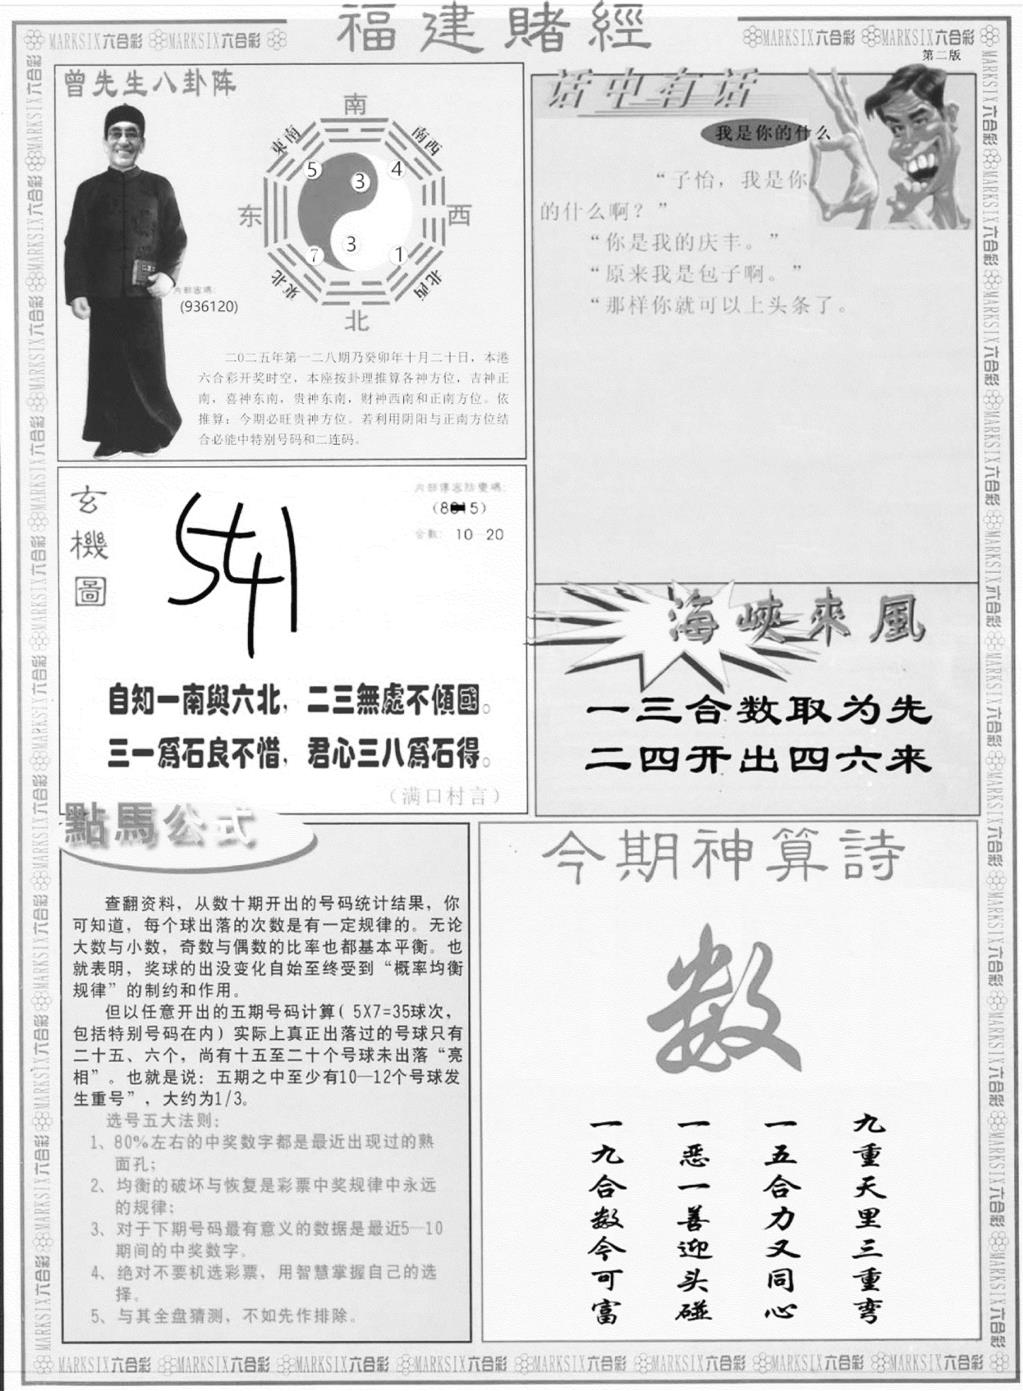 福建賭經
MARKSIX六合彩 MARKSIX六合彩
MARKSIX六合彩 MARKSIX六合彩
第二版
曾先生八卦阵
南
東南
南西
5
3
4
东
西
7
3
1
東北
北西
北
内部密碼:
(936120)
二0二五年第一二八期乃癸卯年十月二十日，本港
六合彩开奖时空，本座按卦理推算各神方位，吉神正
南，喜神东南，贵神东南，财神西南和正南方位。依
推算：今期必旺贵神方位。若利用阴阳与正南方位结
合必能中特别号码和二连码。
话中有话
我是你的什么
“子怡，我是你
的什么啊？”
“你是我的庆丰。”
“原来我是包子啊。”
“那样你就可以上头条了。
玄機圖
541
合數: 10-20
自知一南與六北，二三無處不傾國。
三一爲石良不惜，君心三八爲石得。
（满口村言）
海峽來風
一三合数取为先
二四开出四六来
點馬公式
查翻资料，从数十期开出的号码统计结果，你
可知道，每个球出落的次数是有一定规律的。无论
大数与小数，奇数与偶数的比率也都基本平衡。也
就表明，奖球的出没变化自始至终受到“概率均衡
规律”的制约和作用。
但以任意开出的五期号码计算( 5X7=35球次，
包括特别号码在内）实际上真正出落过的号球只有
二十五、六个，尚有十五至二十个号球未出落“亮
相”。也就是说：五期之中至少有10—12个号球发
生重号”，大约为1/3。
选号五大法则：
1、80%左右的中奖数字都是最近出现过的熟
面孔；
2、均衡的破坏与恢复是彩票中奖规律中永远
的规律；
3、对于下期号码最有意义的数据是最近5—10
期间的中奖数字。
4、绝对不要机选彩票，用智慧掌握自己的选
择。
5、与其全盘猜测，不如先作排除。
今期神算詩
数
九重天里三重弯
一五合力又同心
一恶一善迎头碰
一九合数今可富
MARKSIX六合彩 MARKSIX六合彩 MARKSIX六合彩 MARKSIX六合彩 MARKSIX六合彩 MARKSIX六合彩 MARKSIX六合彩 MARKSIX六合彩